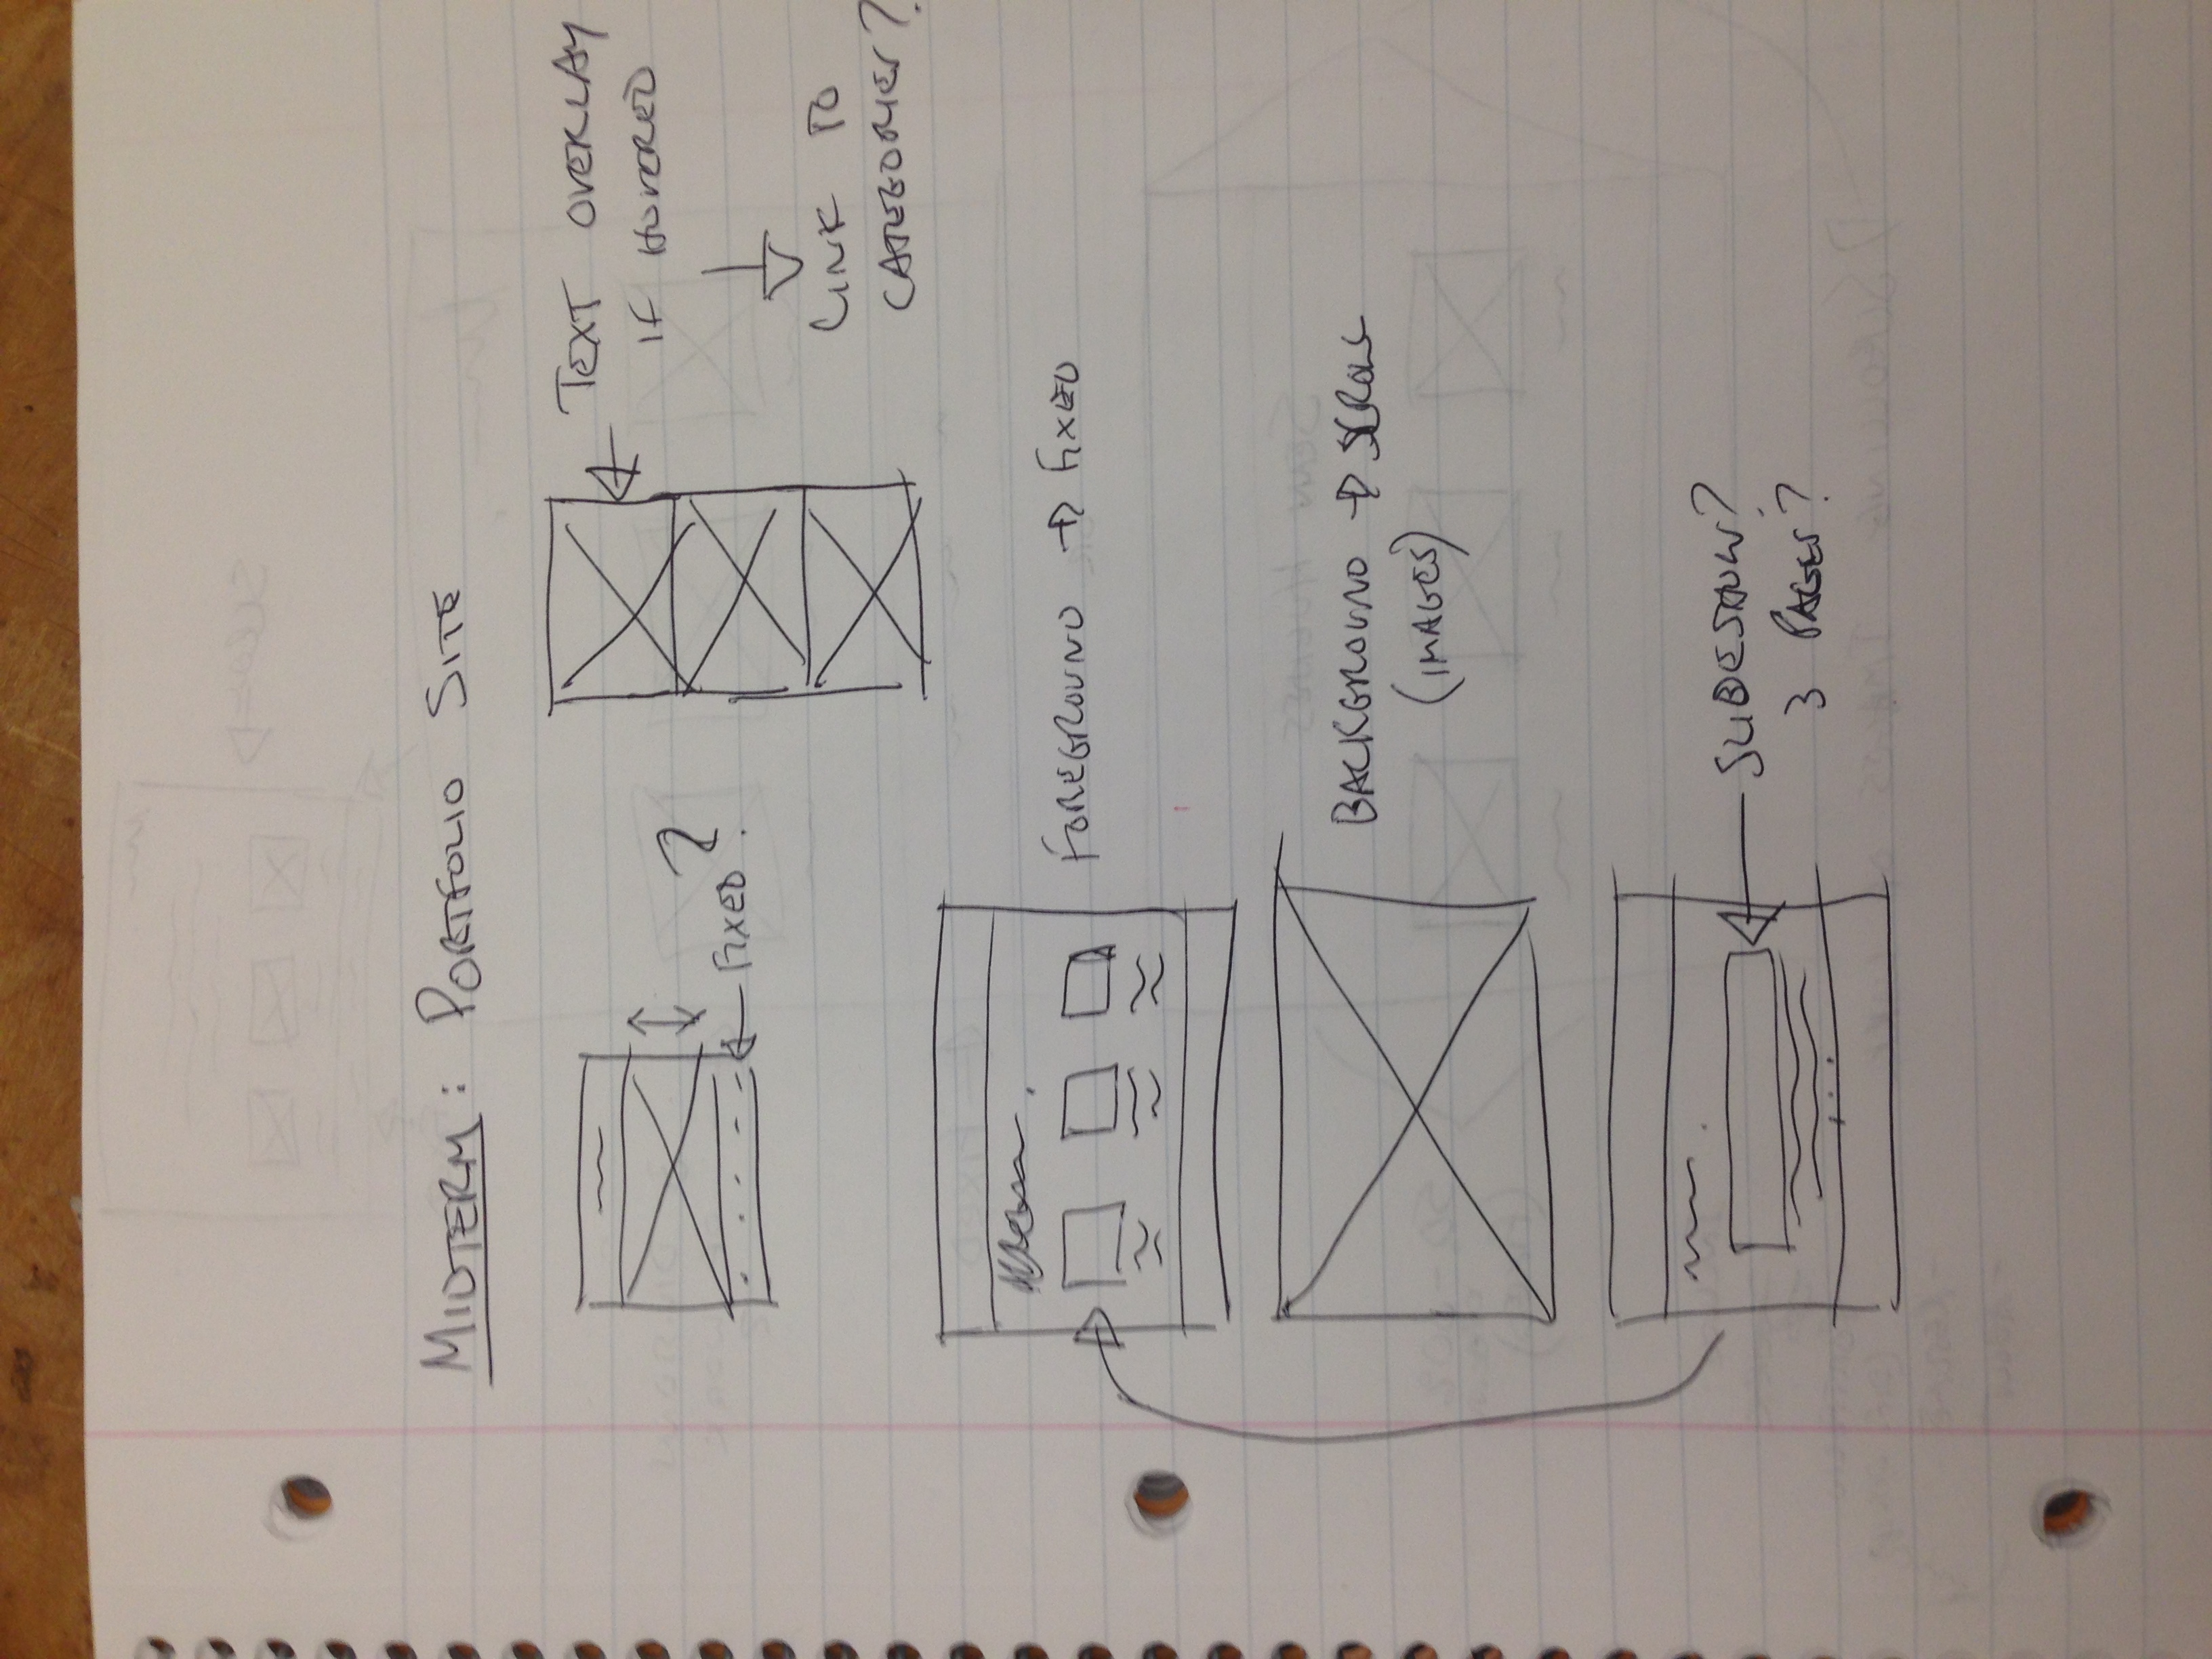 MIDTERM: PORTFOLIO SITE
TEXT OVERLAY
IF HOVERED
FIXED?
LINK TO
CATEGORIES?
FOREGROUND → FIXED
BACKGROUND → SCROLL
(IMAGES)
SLIDESHOW?
3 PAGES?
SEAN HUGHES